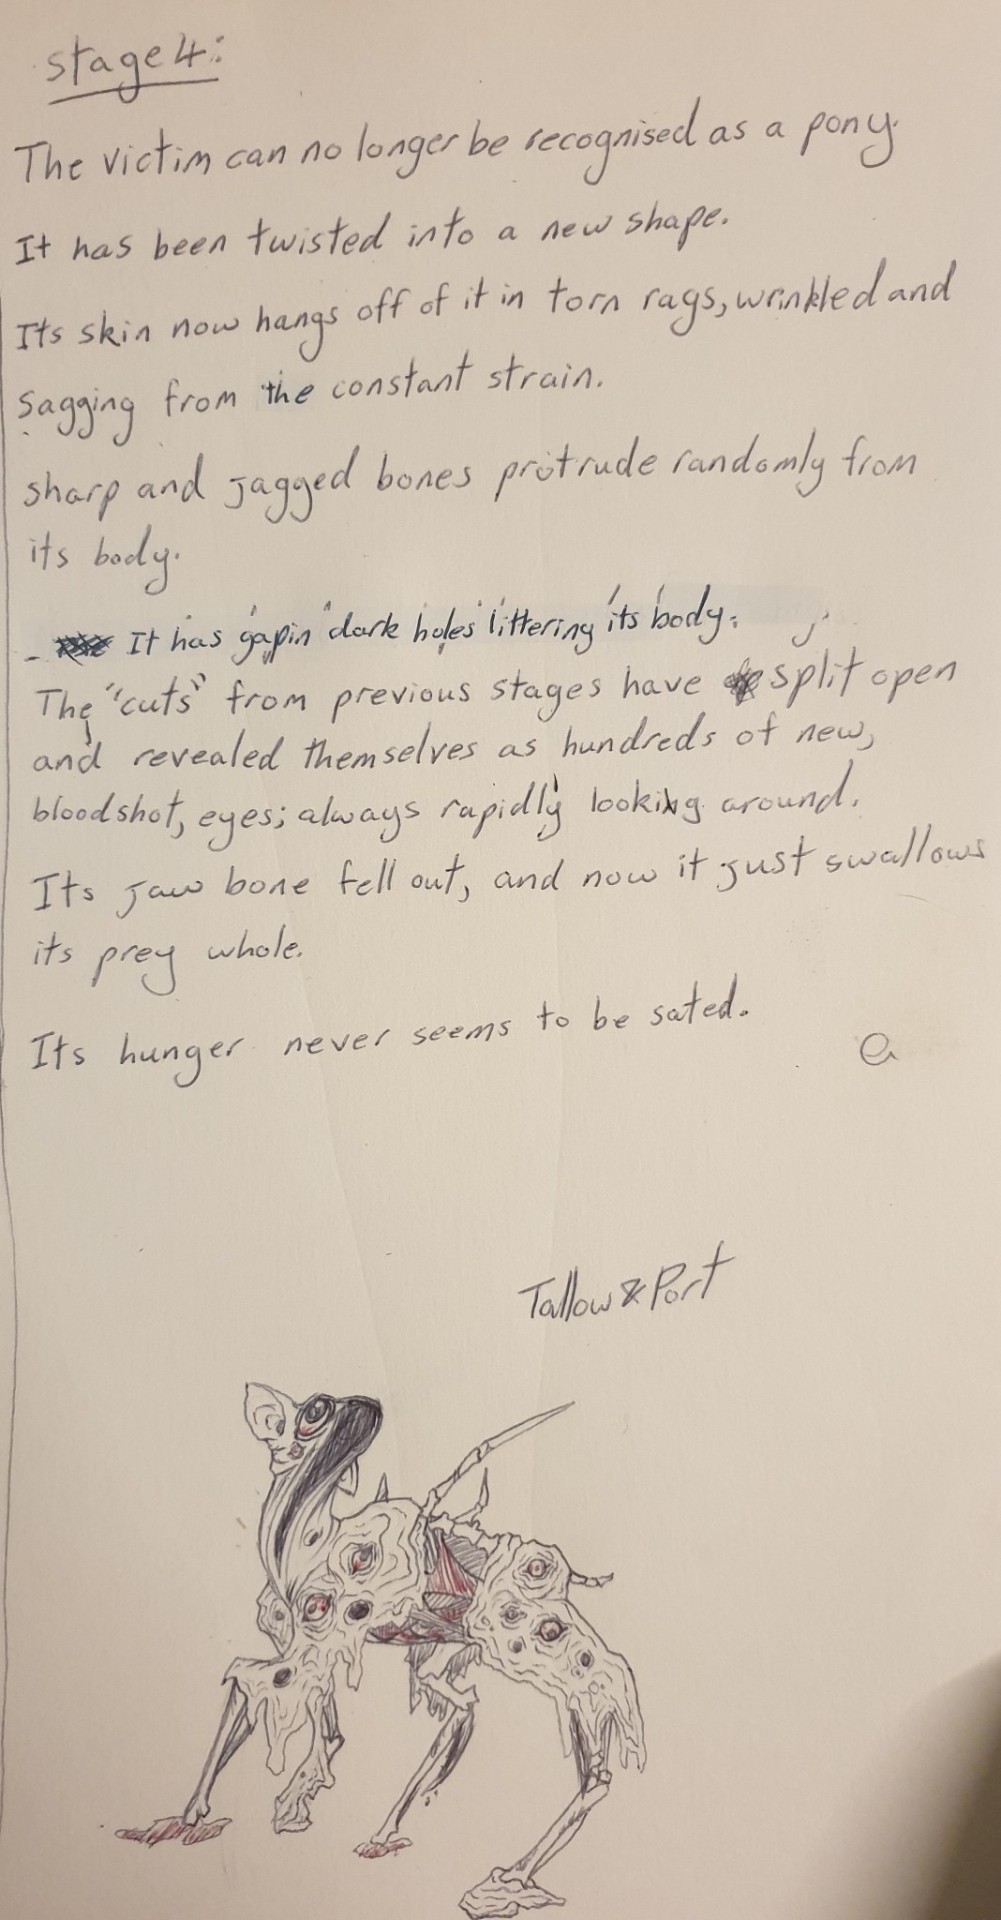 stage 4:
The victim can no longer be recognised as a pony.
It has been twisted into a new shape.
Its skin now hangs off of it in torn rags, wrinkled and
sagging from the constant strain.
sharp and jagged bones protrude randomly from
its body.
- It has gapin dark holes littering its body.
The "cuts" from previous stages have split open
and revealed themselves as hundreds of new,
bloodshot, eyes; always rapidly looking around.
Its jaw bone fell out, and now it just swallows
its prey whole.
Its hunger never seems to be sated.
Tallow & Port